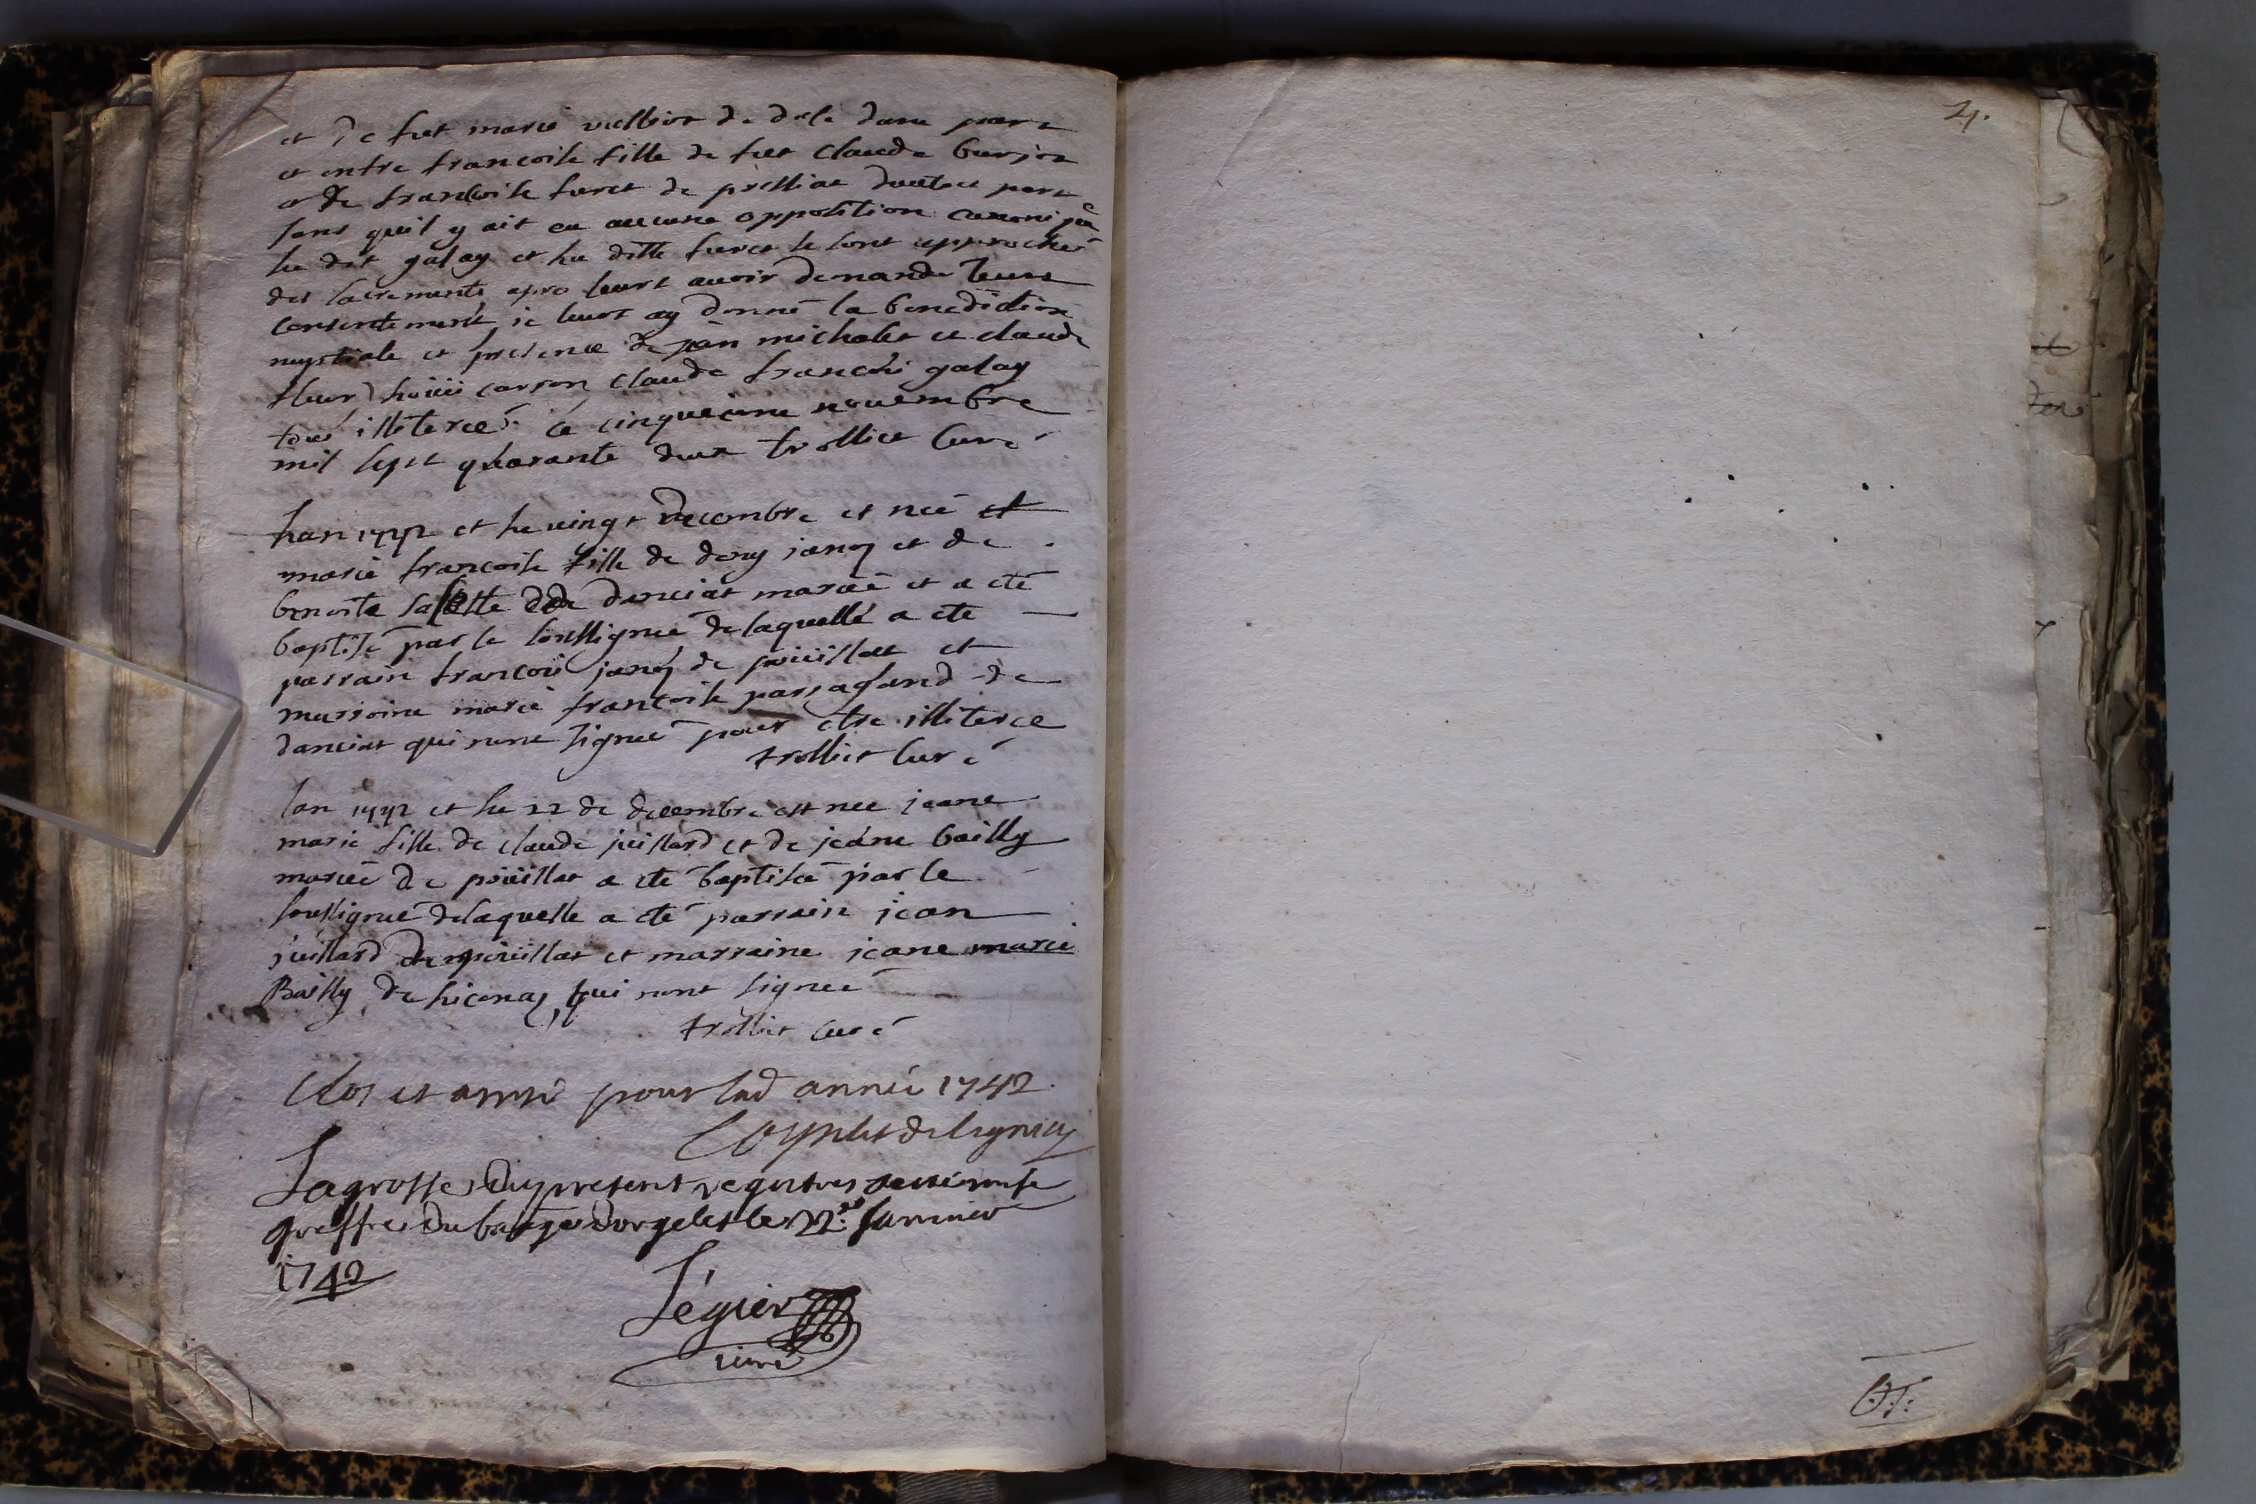 et de fut marie vielliot de dele dune part
et entre francoise fille de fut claude burjon
et de francoise furet de prelliat dautre part
sans quil y ait eu aucune opposition canonique
le dit galay et la ditte furet se sont approché
des sacrements apres leurs avoir demande leurs
consentement je leurs ay donné la benediction
nuptiale et presence de jan michalet et claude
carson claude francoi galay
tous illiteree ce cinquieme novembre
mil sept quarante deux trolliet curé
lan 1742 et le vingt decembre et neé et
marie francoise fille de deny janoy et de
benoite de danciat marieé et a eté
baptisé par le soussigneé de laquelle a ete
parrain francoi janoy de poüillat et
marraine marie francoise de
danciat qui nont signeé pour etre illiteree
trolliet curé
lan 1742 et le 22 de decembre est nee jeane
marie fille de claude juillard et de jeane bailly
marieé de poüillat a eté baptiseé par le
soussigneé de laquelle a eté parrain jean
juillard de poüillat et marraine jeane marie
Bailly de qui nont signeé
trolliet curé
Clos et arresté pour lad année 1742
La grosse du present registres a esté remise
greffe du baage dorgelet le 22e Janvier
1742
Légier
4.